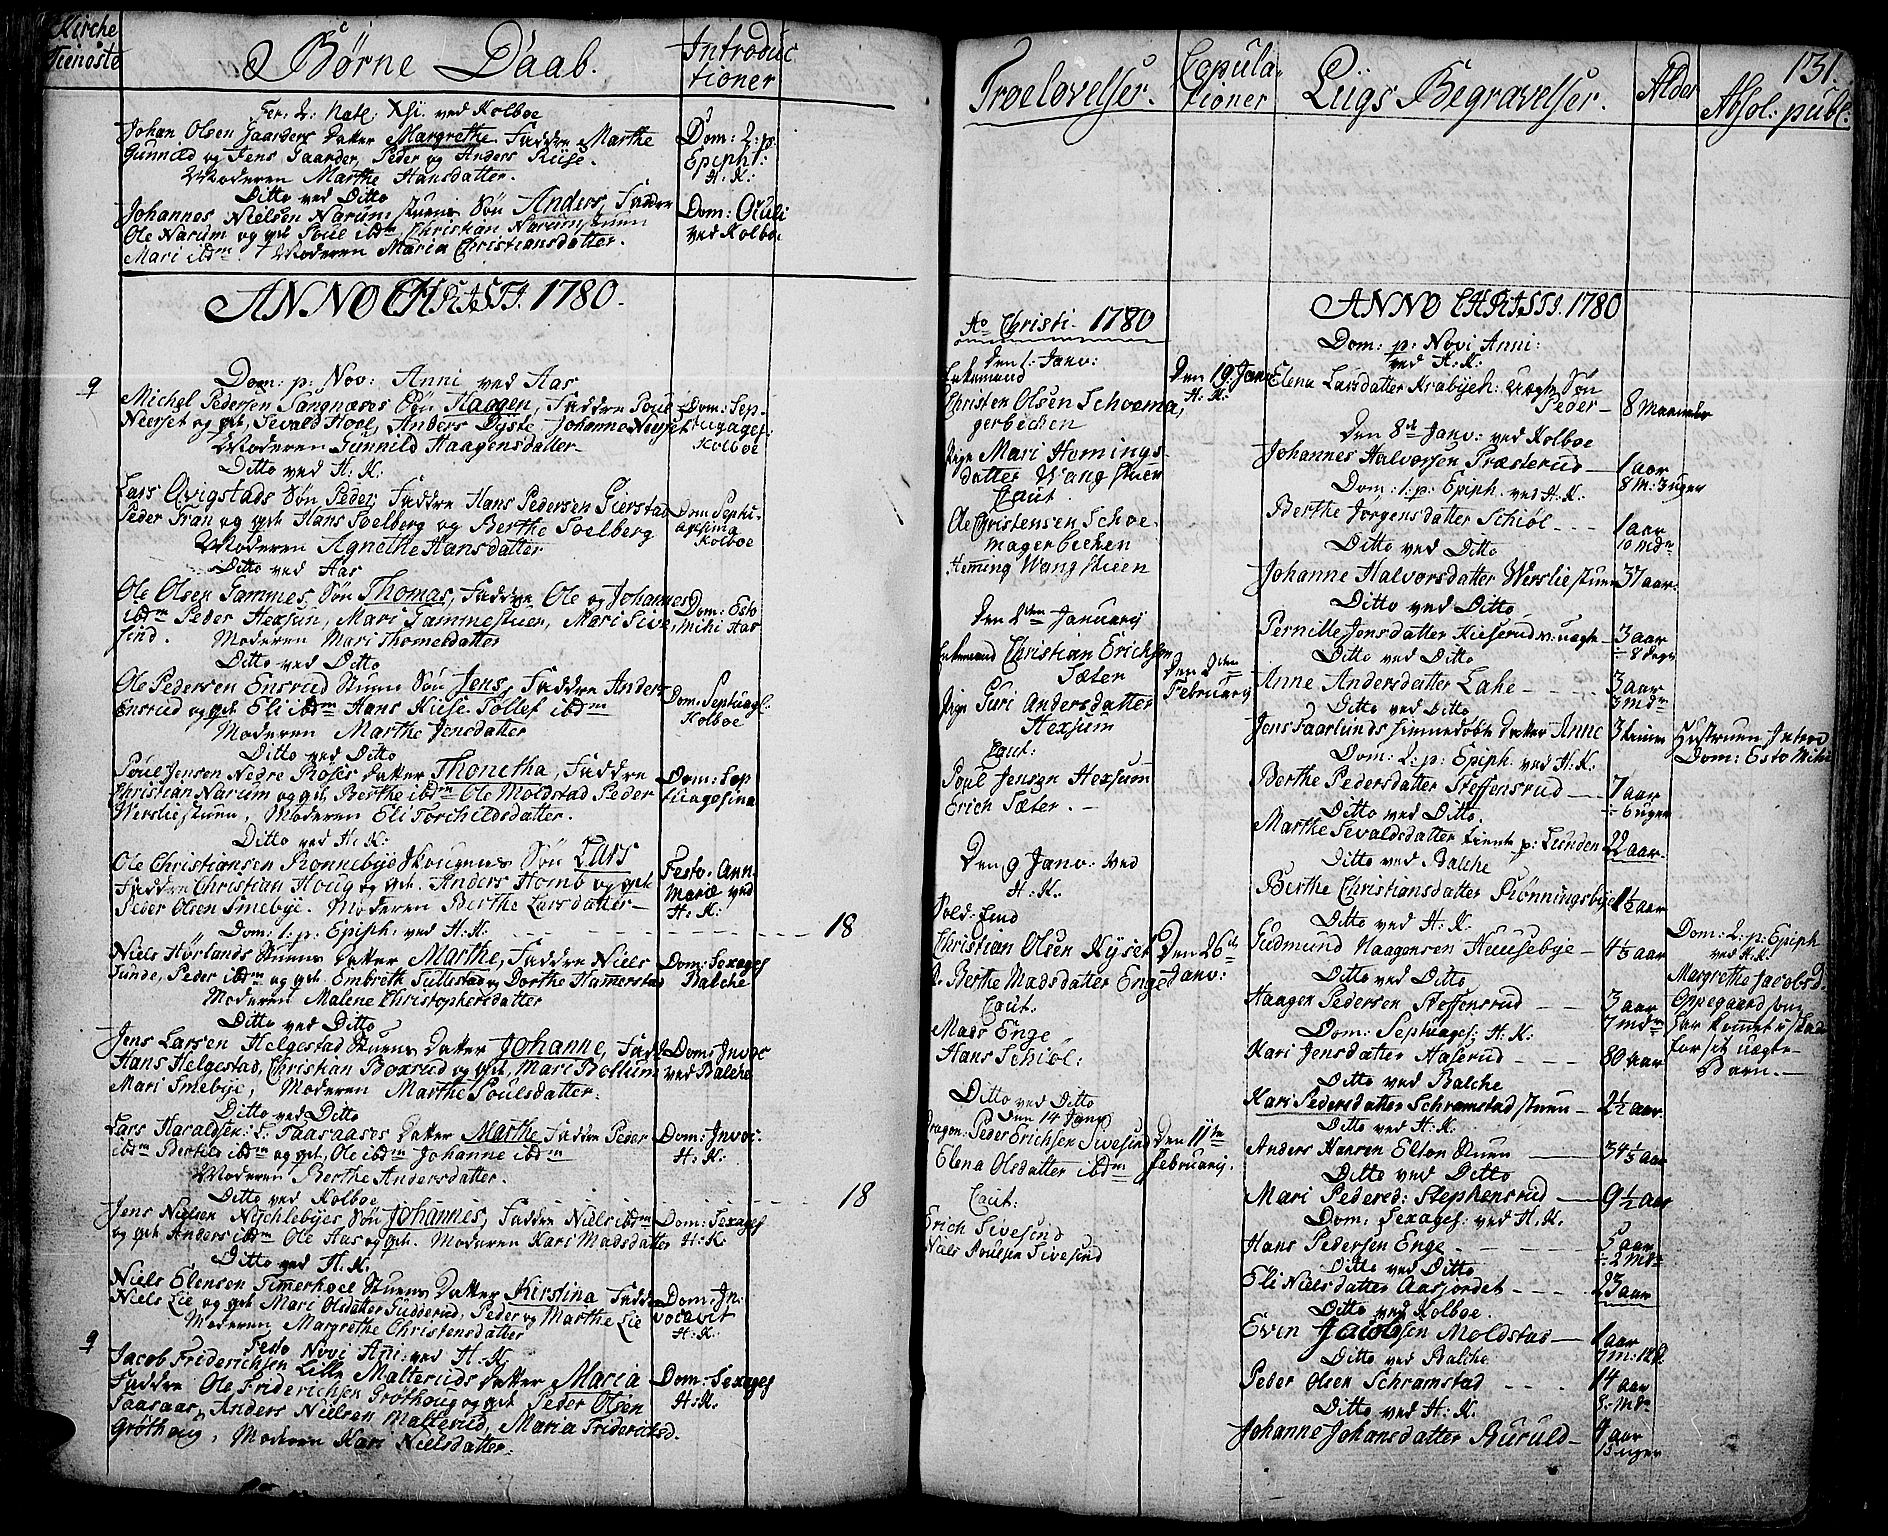 Kirche
Tieneste
Børne Daab.
Introduc
tioner
Fer. 2. Natl. Xti. ved Kolboe
Johan Olsen Gaarders datter Margrethe Faddre Marthe
Gunnild og Jens Gaarder, Peder og Anders Riise.
Moderen Marthe Hansdatter.
Dom: 2. p.
Epiph:
H. K:
Ditto ved Ditto
Johannes Nielsen Narum stuens Søn Anders, Faddre
Ole Narum og qvt Poul ibdm Christian Narumstuen
Mari ibdm. Moderen Maria Christiansdatter.
Dom: Oculi
ved Kolboe
ANNO CHRISTI. 1780.
9
Dom: p: Nov: Anni ved Aas
Michel Pedersen Sangnæses Søn Haagen, Faddre Poul
Neerset og qvt, Sevald Hoel, Anders Dyste, Johanne Neerset
Moderen Gunnild Haagensdatter
Dom: Sep-
tuages:
Kolboe
Ditto ved H: K:
Lars Qvigstads Søn Peder, Faddre Hans Pedersen Gierstad
Peder Fran og qvt Hans Soelberg og Berthe Soelberg
Moderen Agnethe Hansdatter
Dom: Septu-
agesima
Kolboe
Ditto ved Aas
Ole Olsen Gammes Søn Thomas, Faddre Ole og Johannes
ibdm Peder Hexsum, Mari Gammestuen, Mari Sive
sind. Moderen Mari Thomesdatter
Dom: Esto
Mihi Aas
Ditto ved Ditto
Ole Pedersen Ensrud Stuen Søn Jens, Faddre Anders
Ensrud og qvt Eli ibdm Hans Kiese Tollef ibdm
Moderen Marthe Jensdatter
Dom: Septuag.
Kolboe
Ditto ved Ditto
Poul Jensen Nedre Roses datter Thonetha, Faddre
Christian Narum og qvt Berthe ibdm Ole Moldstad Peder
Werslie stuen, Moderen Eli Torchildsdatter.
Dom: Sep
tuagesima
Ditto ved H: K:
Ole Christiansen Rønnebye skougens Søn Lars
Faddre Christian Houg og qvt. Anders Homb og qvt
Peder Olsen Smebye. Moderen Berthe Larsdatter
Festo. Ann.
Mariæ ved
H: K:
Dom: 1. p: Epiph: ved H: K: 18
Niels Hørlands Stuens Datter Marthe, Faddre Niels
Sunde, Peder ibdm og qvt Embreth Tuttestad og Dorthe Hamerstad
Moderen Malene Christophersdatter
Dom: Sexages
Balche
Ditto ved Ditto
Jens Larsen Helgestad Stuens Datter Johanne, Fadd
Hans Helgestad, Christian Boxrud og qvt, Mari Bollum
Mari Smebye, Moderen Marthe Poulsdatter:
Dom: Invoc
ved Balche
Ditto ved Ditto
Lars Haraldsen: L. Faasaases Datter Marthe Faddre Peder
ibdm Berthe ibdm og qvt, Ole ibdm Johanne ibdm
Moderen Berthe Andersdatter.
Dom: Invoc.
H: K:
Ditto ved Kolboe 18
Jens Nielsen Nychlebyes Søn Johannes, Faddre Niels ibdm
og qvt Anders ibdm Ole Aas og qvt. Moderen Kari Madsdatter
Dom: Sexages
H: K:
Ditto ved H: K:
Niels Elensen Timerhoel Stuens Datter Kirstina Faddre
Niels Lie og qvt Mari Olsdatter Gudderud, Peder og Marthe Lie
Moderen Margrethe Christensdatter
Dom: In-
vocavit
H: K:
9
Festo Novi Ani: ved H: K:
Jacob Friderichsen Lille Malteruds datter Maria
Faddre Ole Friderichsen Grøthoug og qvt Peder Olsen
Faasaas, Anders Nielsen Malterud, Maria Friderichsd.
Grøthoug, Moderen Kari Nielsdatter.
Dom: Sexages
H: K:
Troelovelser.
Copula-
tioner
Liigs Begravelser.
Alder
131.
Absol: publ:
Ao Christi. 1780
den 1. Janv:
Enkemand
Christen Olsen Schoema
gerbechen
Pige Mari Hemings-
datter Wang stuen
Caut.
Ole Christensen Schoe-
magerbechen
Heming Wang stuen
Den 19 Janv
H: K:
Den 2den Januarij
Enkemand Christian Erichsen
Sæter
Pige Guri Andersdatter
Hexsum
Caut:
Poul Jensen Hexsum
Erich Sæter. -
Den 2den
Februarij
Den 9 Janv: ved
H: K.
Sold: 
Christian Olsen Kyset
P. Berthe Madsdatter Enge
Caut:
Mads Enge
Hans Schiøl:
Den 26de
Janv:
Ditto ved Ditto
den 14 Janv
Dragon: Peder Erichsen Sivesind
Elena Olsdatter ibdm
Caut:
Erich Sivesind
Niels Poulsen Sivesind
Den 11te
Februarij.
ANNO CHRISTI. 1780
Dom: p: Novi Anni:
ved H: K:
Elena Larsdatter Krabyeh: uægte Søn
Peder- 8 Maaneder
Den 8de Janv: ved Kolboe
Johannes Halvorsen Præsterud- 1 aar
8 M: 3 uger
Dom: 1: p: Epiph. ved H: K:
Berthe Jorgensdatter Schiøl - - - 1 aar
10 Mdr
Ditto ved Ditto
Johanne Halvorsdatter Werslie stuen 37 aar:
Ditto ved Ditto
Pernille Jensdatter Kieserud uægte- 3 aar
÷ 8 dage
Ditto ved Ditto
Anne Andersdatter Lahe- - - - 3 aar
3 Mdr
Ditto ved Ditto
Jens Paarlunds hiemedøbte datter Anne 3 timer
Hustruen Introd
Dom: Esto Mihi
Dom: 2: p: Epiph ved H: K:
Berthe Pedersdatter Steffensrud - 7 aar
÷ 6 uger
Ditto ved Ditto.
Marthe Sevaldsdatter tiente p: Lunden 22 aar.
Ditto ved Balche
Berthe Christiansdatter Rønningsbye 1½ aar
Ditto ved H: K
Gudmund Haagensen Huusebye - 4½ aar
Ditto ved Ditto
Haagen Pedersen Steffensrud - 3 aar
7 Mdr
Dom: 2. p: Epiph
ved H: K:
Margrethe Jacobsd.
Oppegaard som
har kommet i skade
for sit uægte-
Barn. -
Dom: Septuages: H: K:
Kari Jensdatter Haserud - - - 80 aar
Ditto ved Balche
Kari Pedersdatter Schramstad stuen - 2½ aar.
Ditto ved H: K:
Anders Hansen Elton Stuen - 34½ aar
Ditto ved Ditto
Mari Pedersd: Stephensrud - 9½ aar
Dom: Sexages: ved H: K.
Hans Pedersen Enge - - - 5 aar
÷ 2 Mdr
Ditto ved Ditto
Eli Nielsdatter Aasjordet - - - 23 aar
Ditto ved Kolboe.
Even Jacobsen Moldstad - 1 aar
7 M: 12 D.
Ditto ved Balche
Peder Olsen Schramstad - - - 14 aar
8 Mdr
Ditto ved H: K.
Johanne Johansdatter Buruld - 9 aar
15 uger